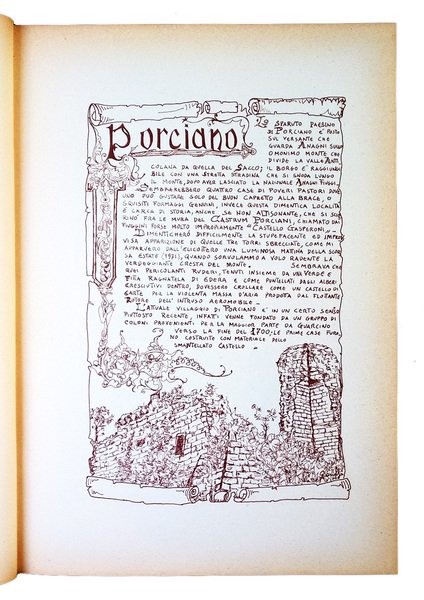 Porciano
Lo sparuto paesino
di Porciano è posto
sul versante che
guarda Anagni sull'
omonimo monte che
divide la valle Ani
colana da quella del Sacco; il borgo è raggiungi
bile con una stretta stradina che si snoda lungo
il monte, dopo aver lasciato la nazionale Anagni Fiuggi.
Sembrerebbero quattro case di poveri pastori dove
uno può gustare solo del buon capretto alla brace, o
gustosi formaggi genuini, invece questa dimentica località
è carica di storia, anche se non altisonante, che si sca
rinò fra le mura del Castrum Porciani, chiamato dai
Fiuggini forse molto impropriamente "Castello Gasperoni".
Dimenticherò difficilmente la stupefacente ed improv
visa apparizione di quelle tre torri sbrecciate, come mi
apparvero dall'elicottero una luminosa matina della scor
sa estate (1981), quando sorvolammo a volo radente la
verdeggiante cresta del monte. Sembrava che
quei pericolanti ruderi, tenuti insieme da una verde e
fitta ragnatela di edera e come puntellati dagli alberi
cresciutivi dentro, dovessero crollare come un castello di
carte per la violenta massa d'aria prodotta dal flottante
rotore dell'intruso aeromobile.
L'attuale villaggio di Porciano è in un certo senso
piuttosto recente, infatti venne fondato da un gruppo di
coloni provenienti per la maggior parte da Guarcino
verso la fine del 1700. Le prime case furo
no costruite con materiale dello
smantellato castello